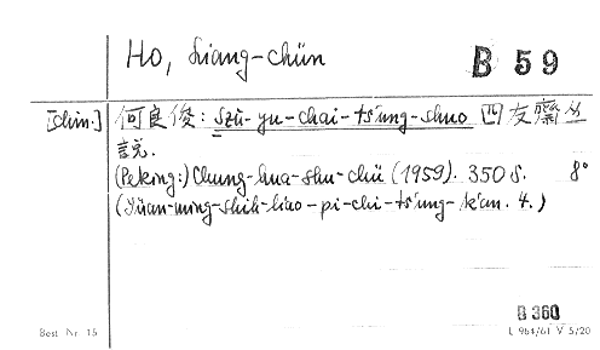 Ho, Liang-chün
B 59
[chin.] 何良俊: Szŭ-yu-chai-ts'ung-shuo 四友齋丛
説.
(Peking:) Chung-hua-shu-chü (1959). 350 S. 8°
(Yüan-ming-shih-liao-pi-chi-ts'ung-k'an. 4.)
B 360
Best Nr 15
L 964/61 V 5/20